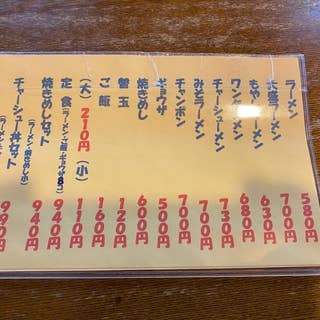 ラーメン 580円
大盛ラーメン 700円
もやしラーメン 630円
ワンタンメン 680円
チャーシューメン 730円
みそラーメン 700円
チャンポン 700円
ギョウザ 500円
焼きめし 600円
替玉 120円
ご飯 160円
(大)210円 (小) 110円
定食(ラーメン・ご飯・ギョウザ8) 940円
焼きめしセット 940円
(ラーメン・焼きめし小)
チャーシュー丼セット 990円
(ラーメン